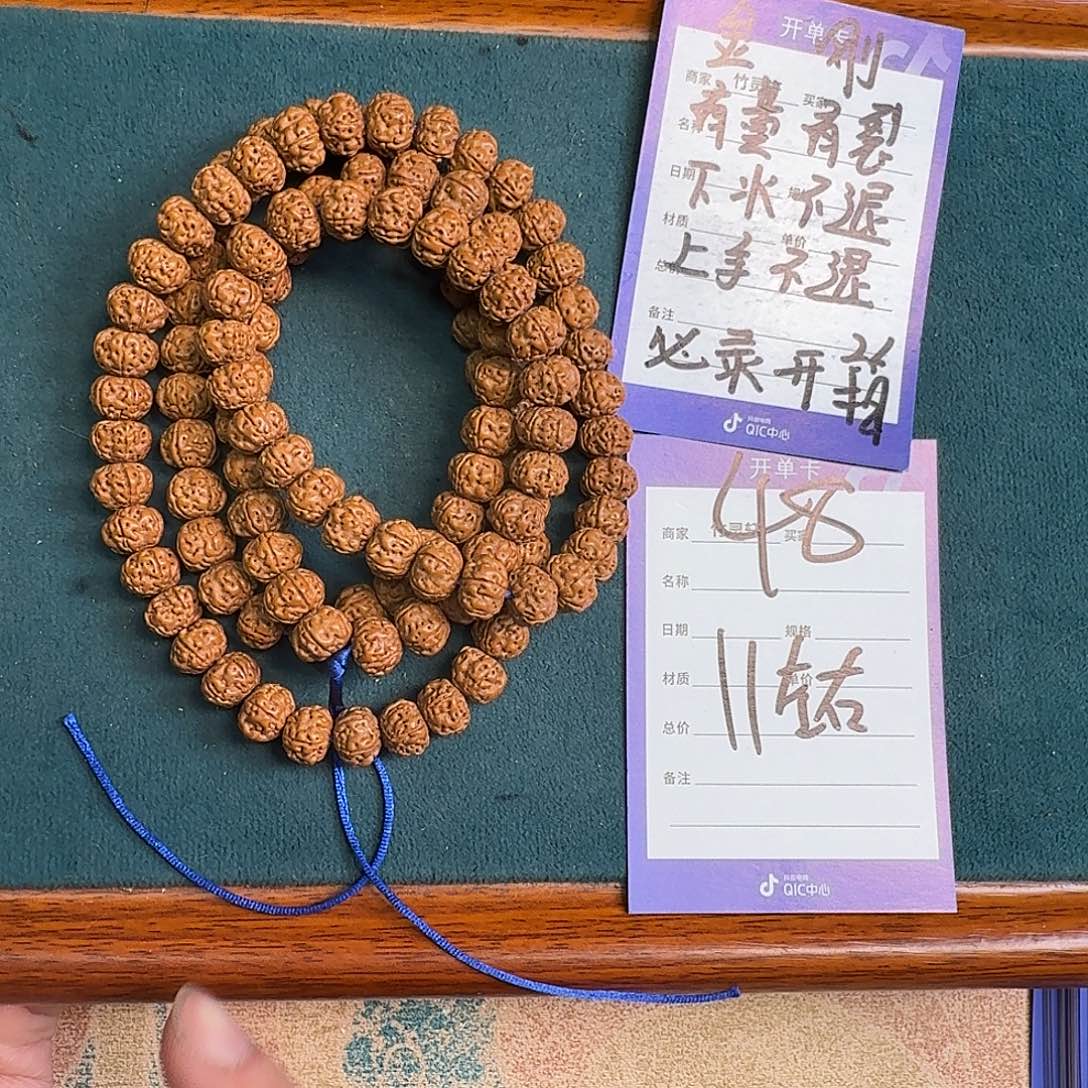 开单卡
商家 竹灵 买家
名称
有 有裂
日期
下水不退
材质 单价
上手不退
备注
必录开箱
抖音电商
QIC中心
开单卡
48
商家 竹灵轩 买家
名称
日期 规格
材质 单价
11左右
总价
备注
抖音电商
QIC中心